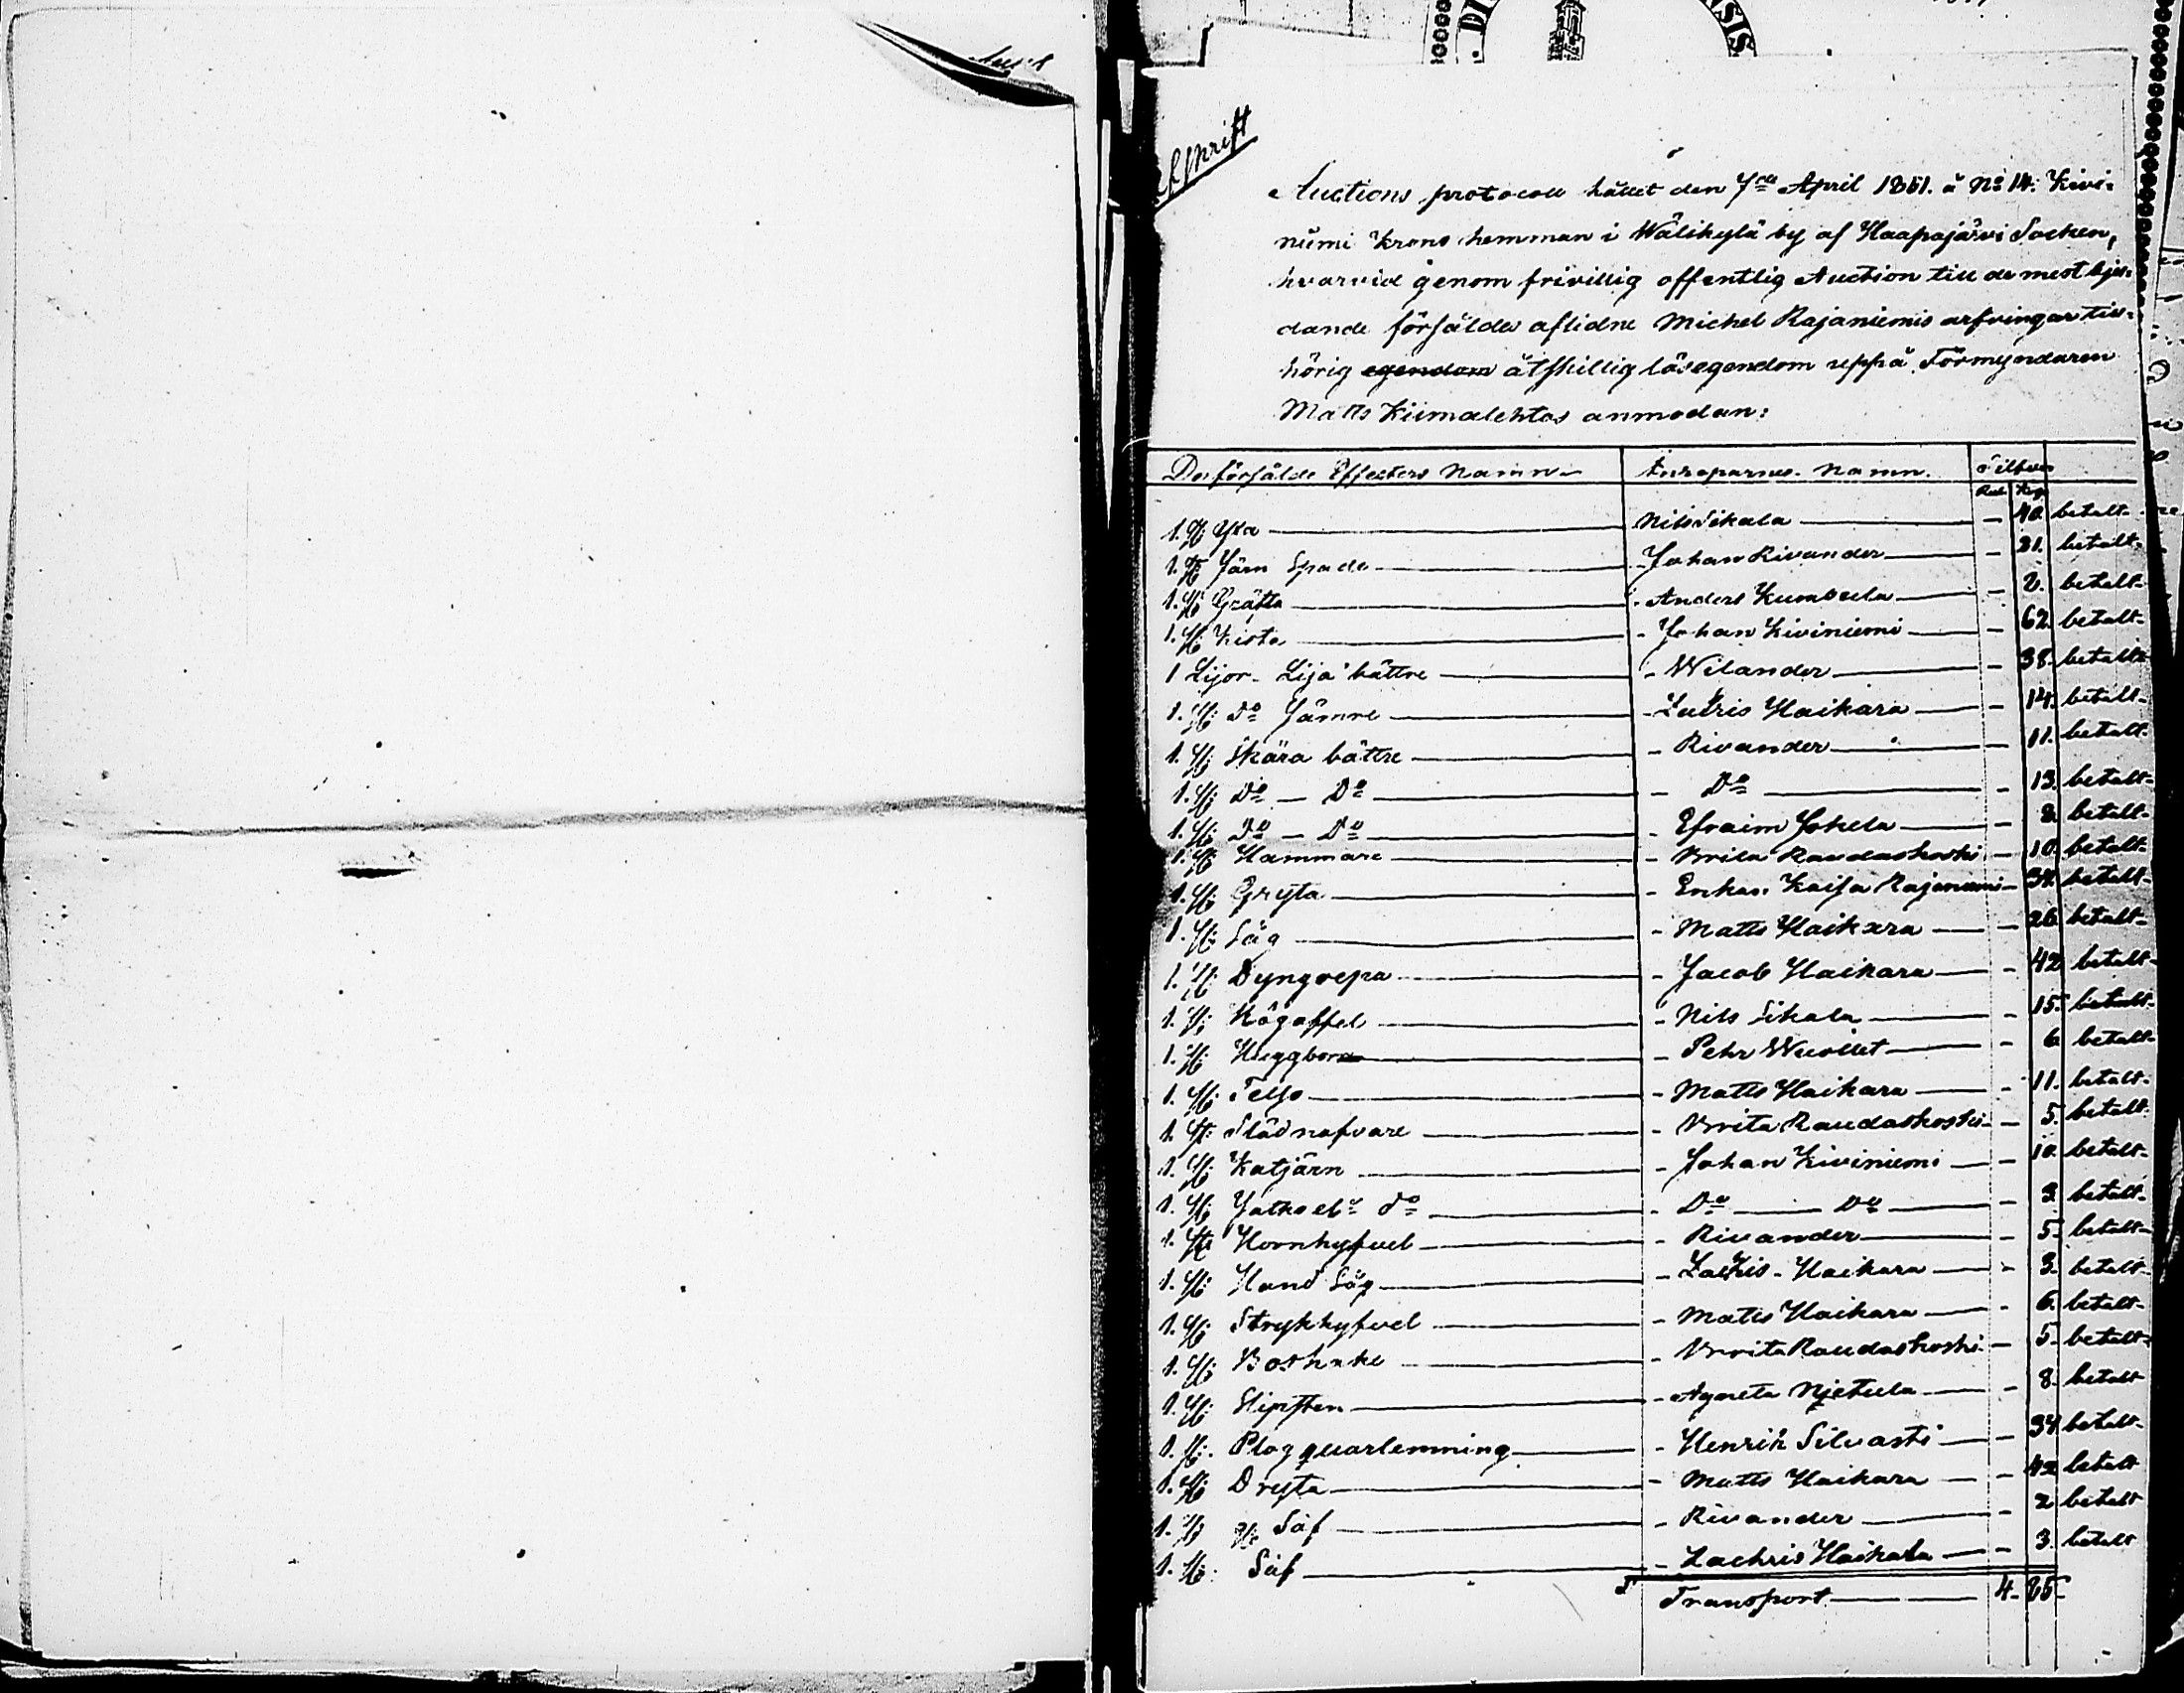 Afskrift
Auctions protocoll hållet den 4de April 1861. å No 14. Kivi-
niimi Krono hemman i Wälikylä by af Haapajärvi Socken,
hvarvid genom frivillig offentlig Auction till de mest bju-
dande försålde aflidne Michel Rajaniemis arfvingar till-
hörig egendom åtskillig lösegendom uppå Förmyndaren
Matts Kiimalehtos anmodan:
De försålde Effecters Namn Inroparnes Namn.
Rub Kop
1. st Yxa Nils Sikala — 40. betalt
1. st Järn Spade Johan Rivander — 21. betalt
1. st Grätta Anders Kumbula — betalt
1. st Kista Johan Kiviniemi — 62. betalt
1 Lijor- Lija bättre Wilander — 38. betalt
1. st do sämre Zachris Haikara — 14. betalt
1. st Skära bättre Rivander — 11. betalt
1. st Do — Do Do — 13. betalt
1. st Do — Do Efraim Jokela — 8. betalt
1. st Hammare Brita Raudaskoski — 10. betalt
1. st Gryta Enkan Kaisa Rajaniemi — 34. betalt
1. st Såg Matts Haikara — 26. betalt
1. st Dyngrepa Jacob Haikara — 42 betalt
1. st Högaffel Nils Sikala — 15. betalt
1. st Huggborr Pehr Wuollet — 6 betalt
1. st Telso Matts Haikara — 11. betalt
1. st Städnafvare Brita Raudaskoski — 5. betalt
1. st Katjärn Johan Kiviniemi — 10. betalt
1. st do Do — Do — 3. betalt
1. st Hornhyfvel Rivander — 5. betalt
1. st Hand Såg Zachris Haikara — 3. betalt
1. st Strykhyfvel Matts Haikara — 6. betalt
1. st Brita Raudaskoski — 5. betalt
1. st Slipsten Agneta — 8. betalt
1. st Plog Henrik Silvasti — 34 betalt
1. st Matts Haikara — 42 betalt
1. st Såf Rivander — 2 betalt
1. st Såf Zachris Haikara — 3. betalt
Transport 4. 85